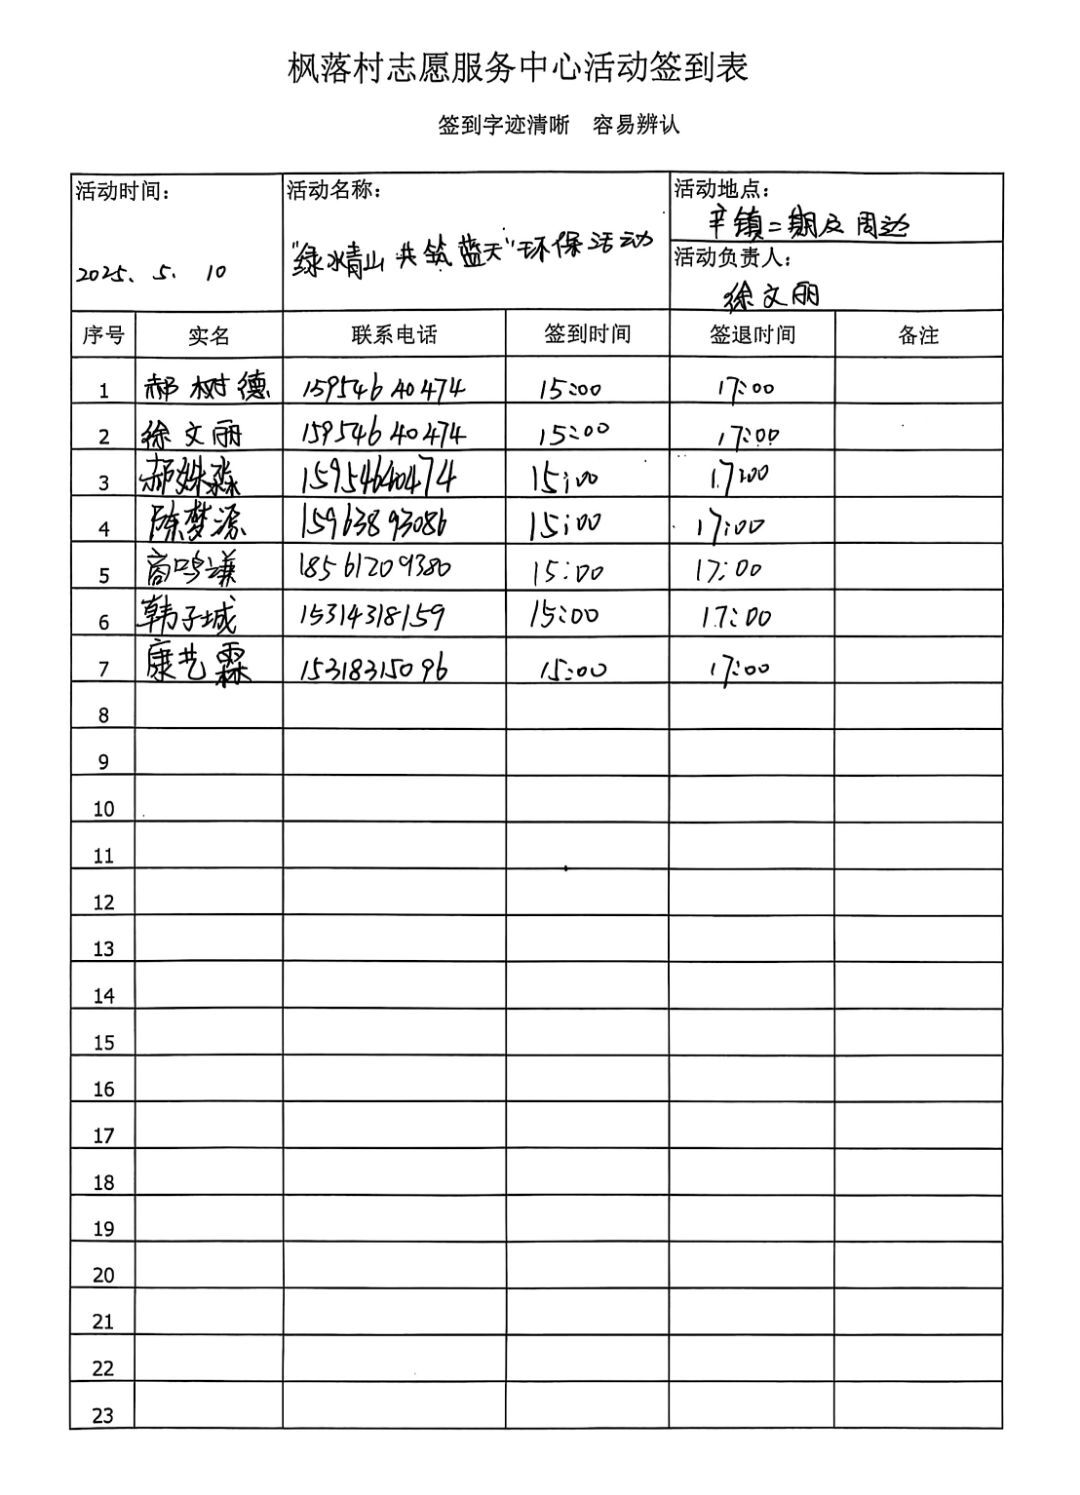 枫落村志愿服务中心活动签到表
签到字迹清晰 容易辨认
活动时间: 活动名称: 活动地点:
辛镇二期及周边
2025、5、10 "绿水青山 共筑蓝天"环保活动 活动负责人:
徐文丽
序号 实名 联系电话 签到时间 签退时间 备注
1 郝树德 15954640474 15:00 17:00
2 徐文丽 15954640474 15:00 17:00
3 郝姝淼 15954640474 15:00 17:00
4 陈梦源 15963893086 15:00 17:00
5 商鸣谦 18561209380 15:00 17:00
6 韩子城 15314318159 15:00 17:00
7 康艺霖 15318315096 15:00 17:00
8
9
10
11
12
13
14
15
16
17
18
19
20
21
22
23